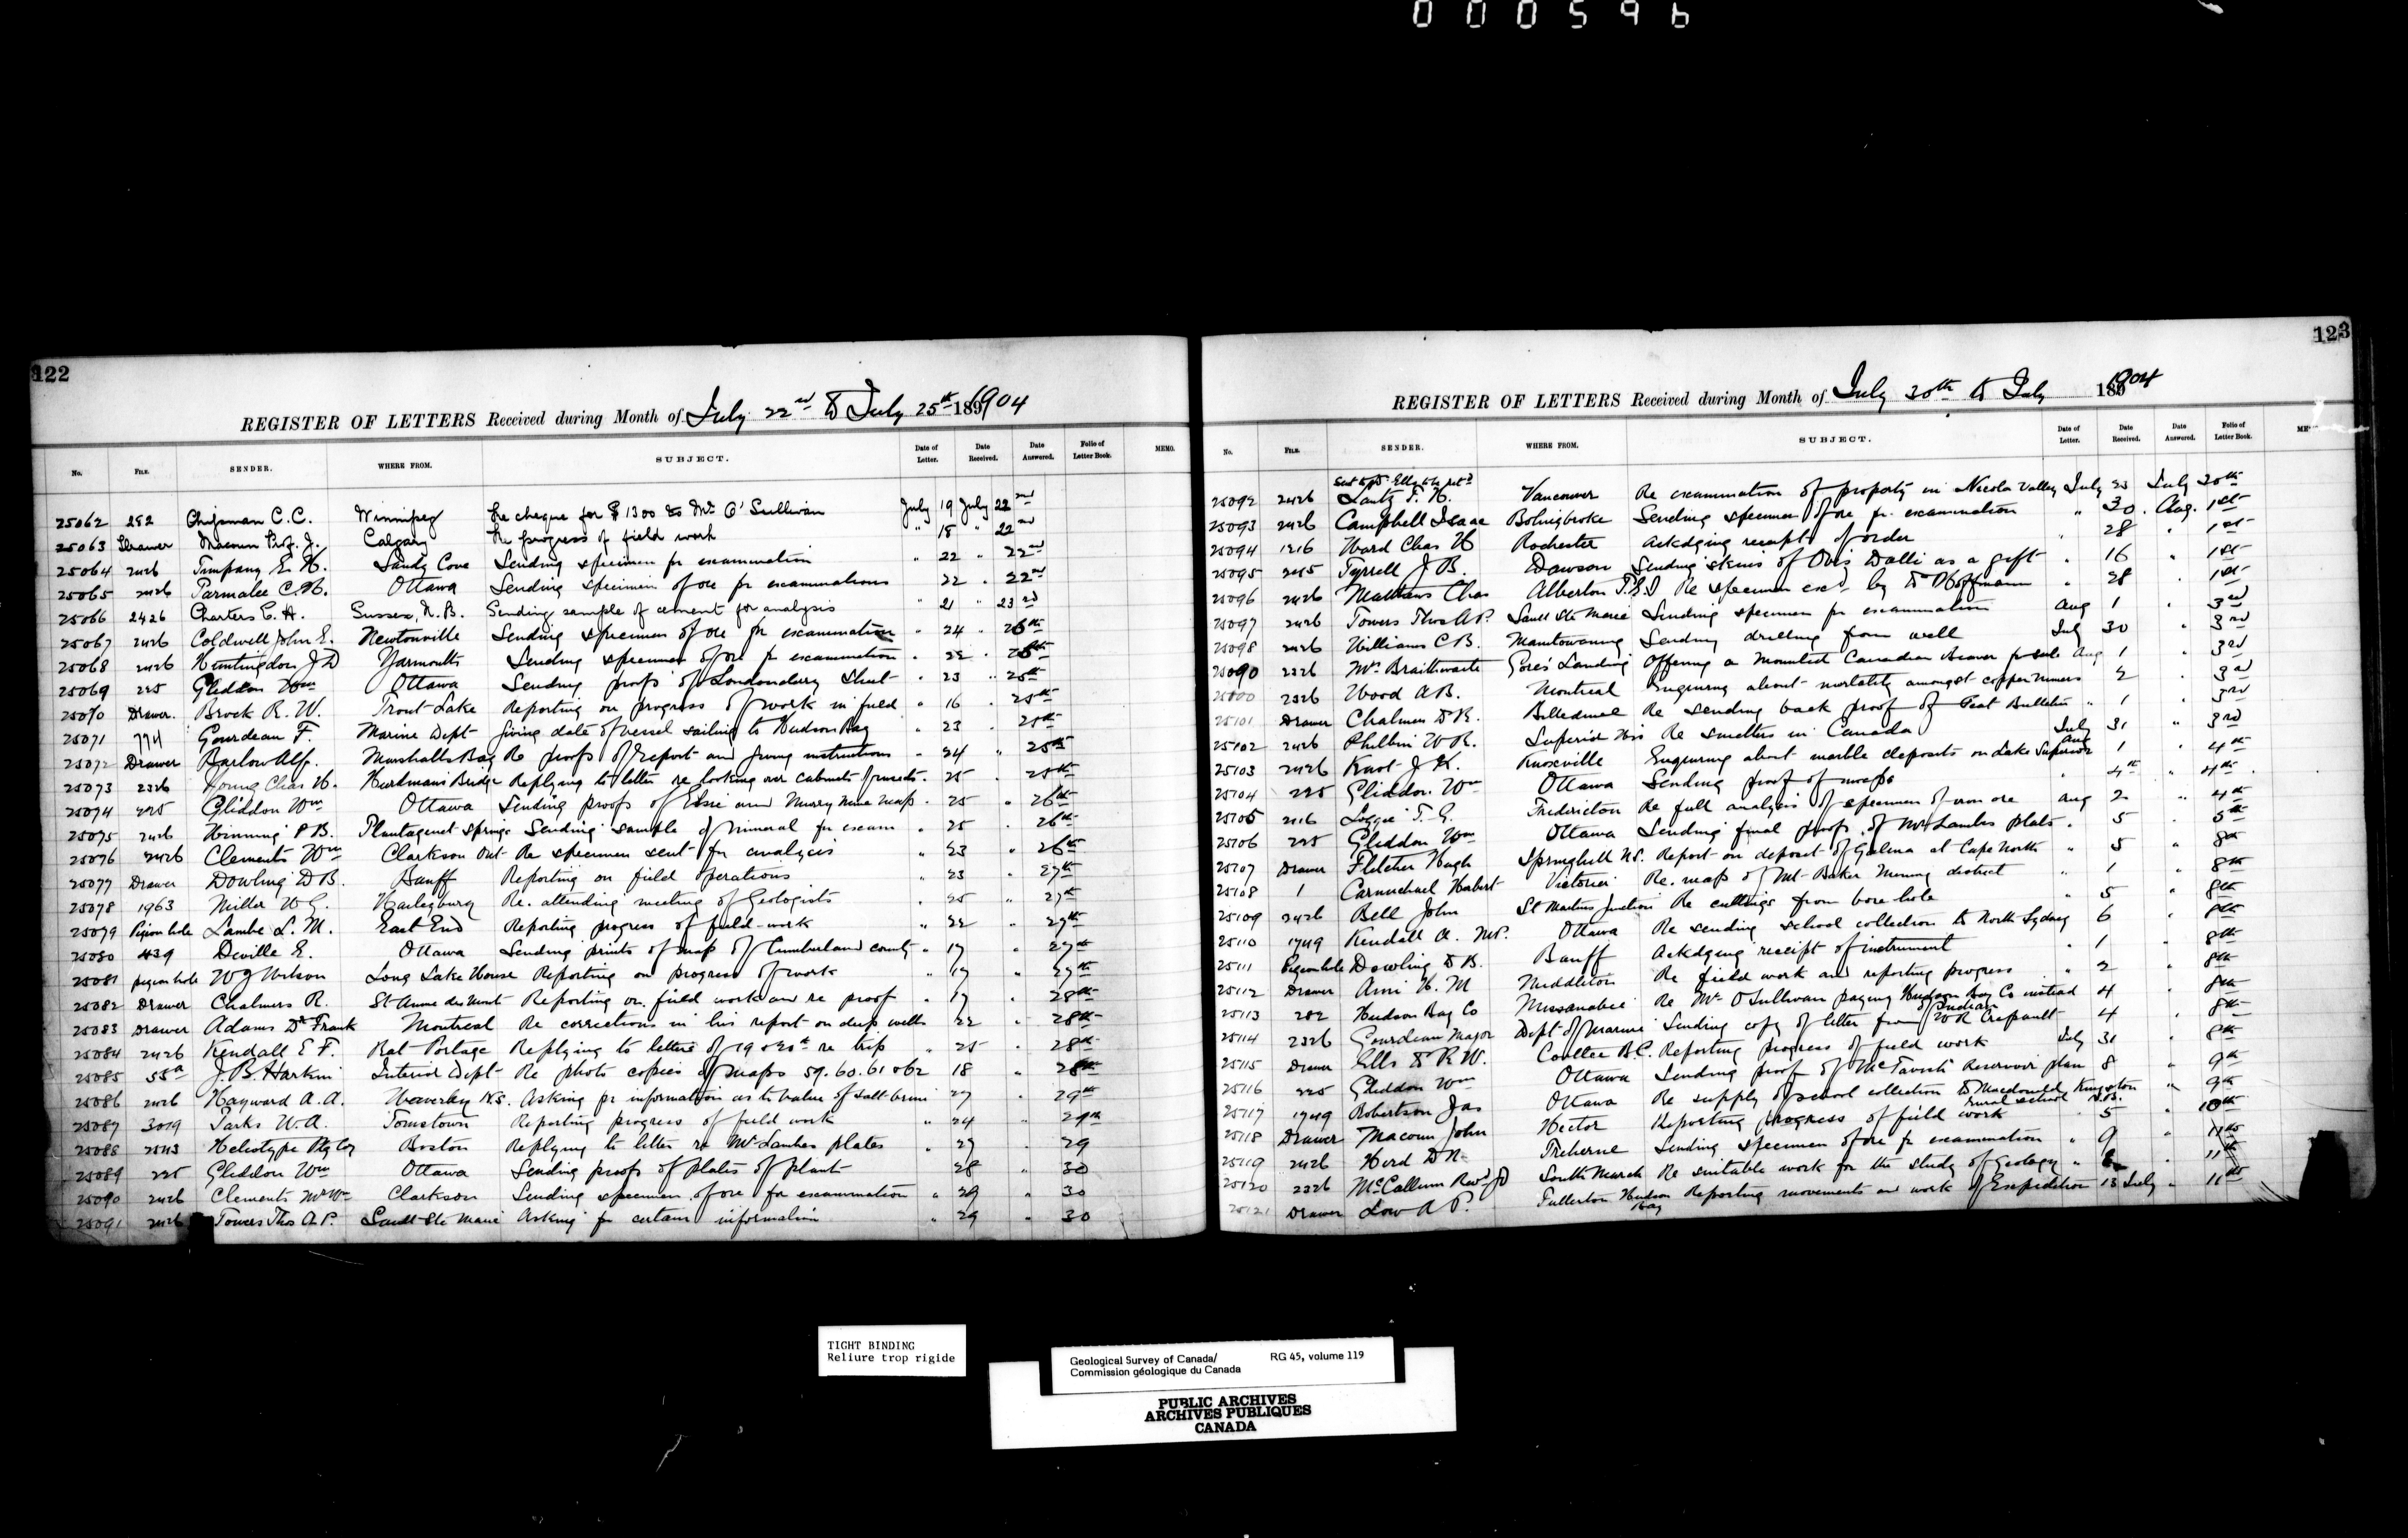 000596
122
REGISTER OF LETTERS Received during Month of July 22nd to July 25th 1904
No. FILE. SENDER. WHERE FROM. SUBJECT. Date of Letter. Date Received. Date Answered. Folio of Letter Book. MEMO.
25062 282 Chipman C.C. Winnipeg Re cheque for $1300 to Mr O'Sullivan July 19 July 22nd
25063 Drawer Macoun Prof. J. Calgary Re progress of field work " 18 " 22nd
25064 2426 Timpany E. H. Sandy Cove Sending specimen for examination " 22 " 22nd
25065 2426 Parmalee C. H. Ottawa Sending specimen of ore for examinations 22 " 22nd
25066 2426 Charters C. H. Sussex, N. B. Sending sample of cement for analysis " 21 " 23rd
25067 2426 Coldwell John E. Newtonville Sending specimen of ore for examination " 24 " 25th
25068 2426 Huntingdon J D Yarmouth Sending specimen of ore for examination " 22 " 25th
25069 225 Gliddon Wm Ottawa Sending proof of Londonderry Sheet " 23 " 25th
25070 Drawer. Brock R. W. Trout Lake Reporting on progress of work in field " 16 " 25th
25071 774 Gourdeau F. Marine Dept giving date of vessel sailing to Hudson Bay 23 " 25th
25072 Drawer Barlow Alf. Marshalls Bay Re proofs of report and giving instructions " 24 " 25th
25073 2326 Young Chas H. Hurdmans Bridge Replying to letter re looking over cabinets of insects. 25 " 25th
25074 225 Gliddon Wm Ottawa Sending proofs of Elsie and Murray Mine Maps " 25 " 26th
25075 2426 Winning P B. Plantagenet Springs Sending sample of mineral for exam " 25 " 26th
25076 2426 Clements Wm Clarkson Ont. Re specimen sent for analysis " 23 " 26th
25077 Drawer Dowling D B. Banff Reporting on field operations " 23 " 27th
25078 1963 Miller W G. Haileybury Re. attending meeting of Geologists " 25 " 27th
25079 Pigeon hole Lambe L. M. East End Reporting progress of field work " 22 " 27th
25080 439 Deville E. Ottawa Sending prints of map of Cumberland county " 17 " 27th
25081 pigeon hole W J Wilson Long Lake House Reporting on progress of work " 17 " 27th
25082 Drawer Chalmers R. St Anne des Monts Reporting on field work and re proof " 17 " 28th
25083 Drawer Adams Dr Frank Montreal Re corrections in his report on deep wells 22 " 28th
25084 2426 Kendall E F. Rat Portage Replying to letters of 19 & 20th re trip " 25 " 28th
25085 55a J. B. Harkin Interior Dept Re photo copies of maps 59. 60. 61 & 62 18 " 28th
25086 2426 Hayward A. A. Waverley N.S. Asking for information as to value of salt brine 27 " 29th
25087 3019 Parks W. A. Tomstown Reporting progress of field work " 24 " 29th
25088 2543 Heliotype Ptg Co Boston Replying to letter re Mr Lambes plates " 27 " 29
25089 225 Gliddon Wm Ottawa Sending proofs of plates of plants 28 " 30
25090 2426 Clements Mr Wm Clarkson Sending specimen of ore for examination " 29 " 30
25091 2426 Towers Thos A P. Sault Ste Marie Asking for certain information " 29 " 30
123
REGISTER OF LETTERS Received during Month of July 30th to July 1904
No. FILE. SENDER. WHERE FROM. SUBJECT. Date of Letter. Date Received. Date Answered. Folio of Letter Book.
25092 2426 Lantz F. H. Vancouver Re examination of property in Nicola Valley July 23 July 30th
25093 2426 Campbell Isaac Bolingbroke Sending specimen of ore for examination " 30. Aug. 1st
25094 1216 Ward Chas H Rochester Ackdging receipt of order " 28 " 1st
25095 Tyrrell J B. Dawson Sending skins of Ovis Dalli as a gift " 16 " 1st
25096 2426 Matthews Chas Alberton P.E.I Re specimen exd. by Dr Hoffmann " 28 " 1st
25097 2426 Towers Thos A P. Sault Ste Marie Sending specimen for examination Aug 1 " 3rd
25098 2426 Williams C B. Manitowaning Sending drilling from well July 30 " 3rd
2326 Mr Braithwaite Gore's Landing Offering a mounted Canadian Beaver for sale Aug 1 " 3rd
2326 Wood A B. Montreal Enquiring about mortality amongst copper miners 2 " 3rd
25101 Drawer Chalmers Dr R. Belledune Re sending back proof of Peat Bulletin " 1 " 3rd
25102 2426 Philbin W R. Superior Wis Re smelters in Canada July 31 " 3rd
25103 2426 Knot J K. Knoxville Enquiring about marble deposits on Lake Superior Aug 1 " 4th
25104 225 Gliddon. Wm Ottawa Sending proof of maps " 4th " 4th
25105 Loggie T. G. Fredericton Re full analysis of specimen of iron ore Aug 2 " 4th
25106 225 Gliddon Wm Ottawa Sending final proofs of Mr Lambes plates. 5 " 5th
25107 Drawer Fletcher Hugh Springhill N.S. Report on deposit of Galena at Cape North " 5 " 8th
25108 1 Carmichael Herbert Victoria Re. map of Mt Baker Mining district " 1 " 8th
25109 2426 Bell John St Martins Junction Re cuttings from bore hole 5 " 8th
25110 1749 Kendall A. M.P. Ottawa Re sending school collection to North Sydney 6 " 8th
25111 Pigeon hole Dowling D B. Banff Ackdging receipt of instrument " 1 " 8th
25112 Drawer Ami H. M Middleton Re field work and reporting progress " 2 " 8th
25113 282 Hudson Bay Co Missanabie Re Mr O'Sullivan paying Hudson Bay Co instead of Indians 4 " 8th
25114 2326 Gourdeau Major Dept of Marine Sending copy of letter from W R Crepault 4 " 8th
25115 Drawer Ells Dr R W. Coutlee B.C. Reporting progress of field work July 31 " 8th
25116 225 Gliddon Wm Ottawa Sending proof of McTavish Reservoir plan 8 " 9th
25117 1749 Robertson Jas Ottawa Re supply of school collection to Macdonald rural school Kingston N.B. " 9th
25118 Drawer Macoun John Hector Reporting progress of field work 5 " 10th
25119 2426 Herd D R Treherne Sending specimen of ore for examination " 9 " 11th
25120 2326 McCallum Revd J D South March Re suitable work for the study of Geology " 8 " 11th
25121 Drawer Low A P. Fullerton Hudson Bay Reporting movements and work of Expedition 13 July " 11th
TIGHT BINDING
Reliure trop rigide
Geological Survey of Canada/ RG 45, volume 119
Commission géologique du Canada
PUBLIC ARCHIVES
ARCHIVES PUBLIQUES
CANADA